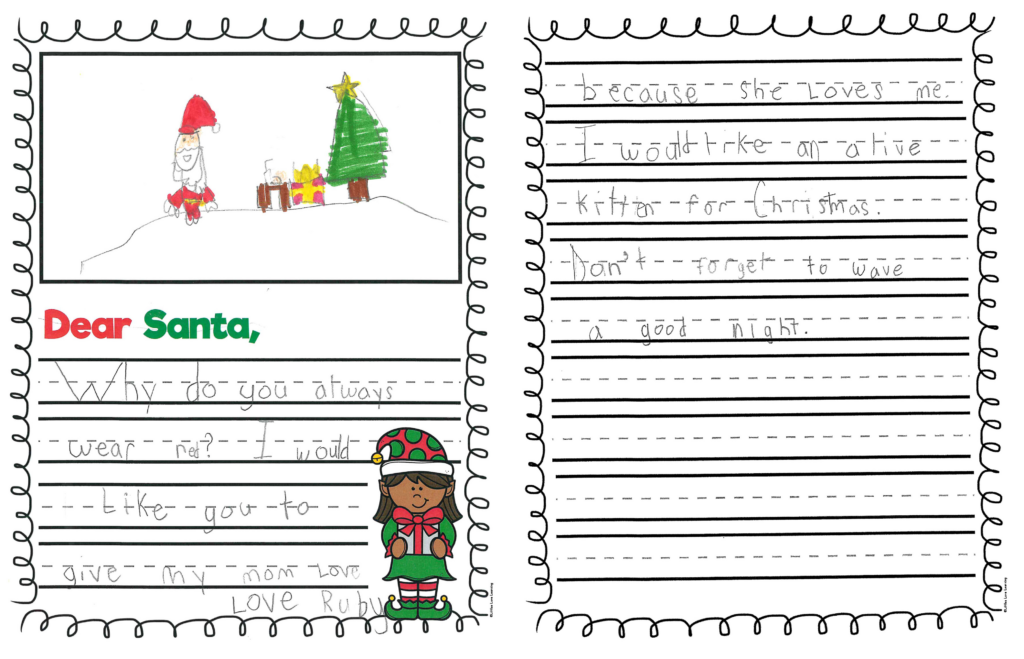 Dear Santa,
Why do you always
wear red? I would
Like you to
give my mom Love
LOVE Ruby
because she Loves me.
I would like an alive
kitten for Christmas.
Don't forget to wave
a good night.